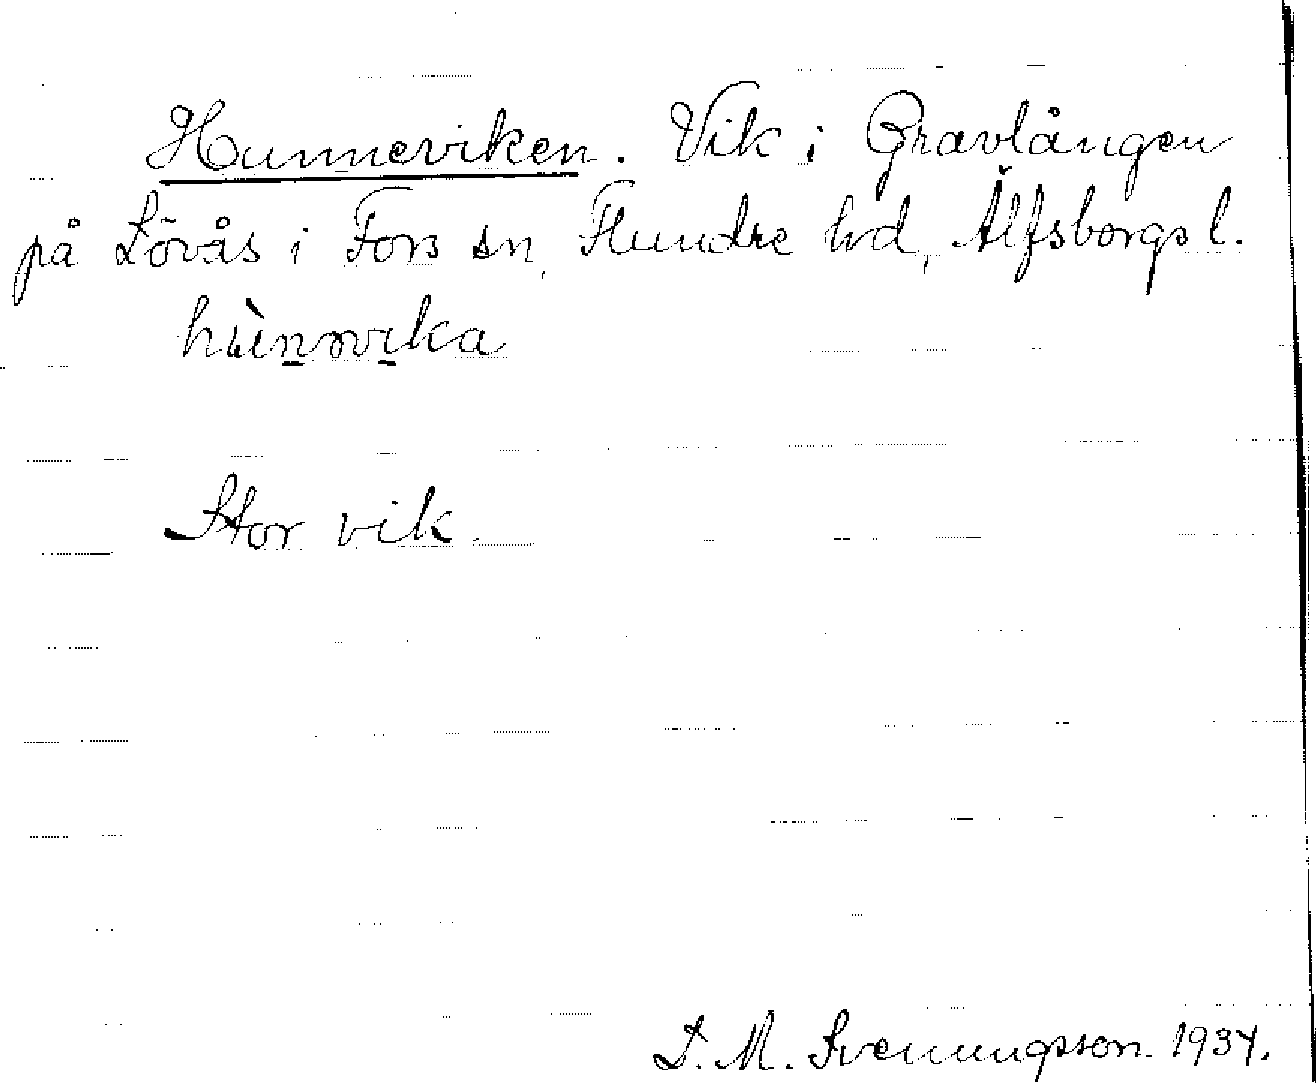 Hunneviken. Vik i Gravlången
på Lövås i Fors sn, Flundre hd, Älfsborgs l.
Stor vik.
S. M. Svenungsson. 1934.